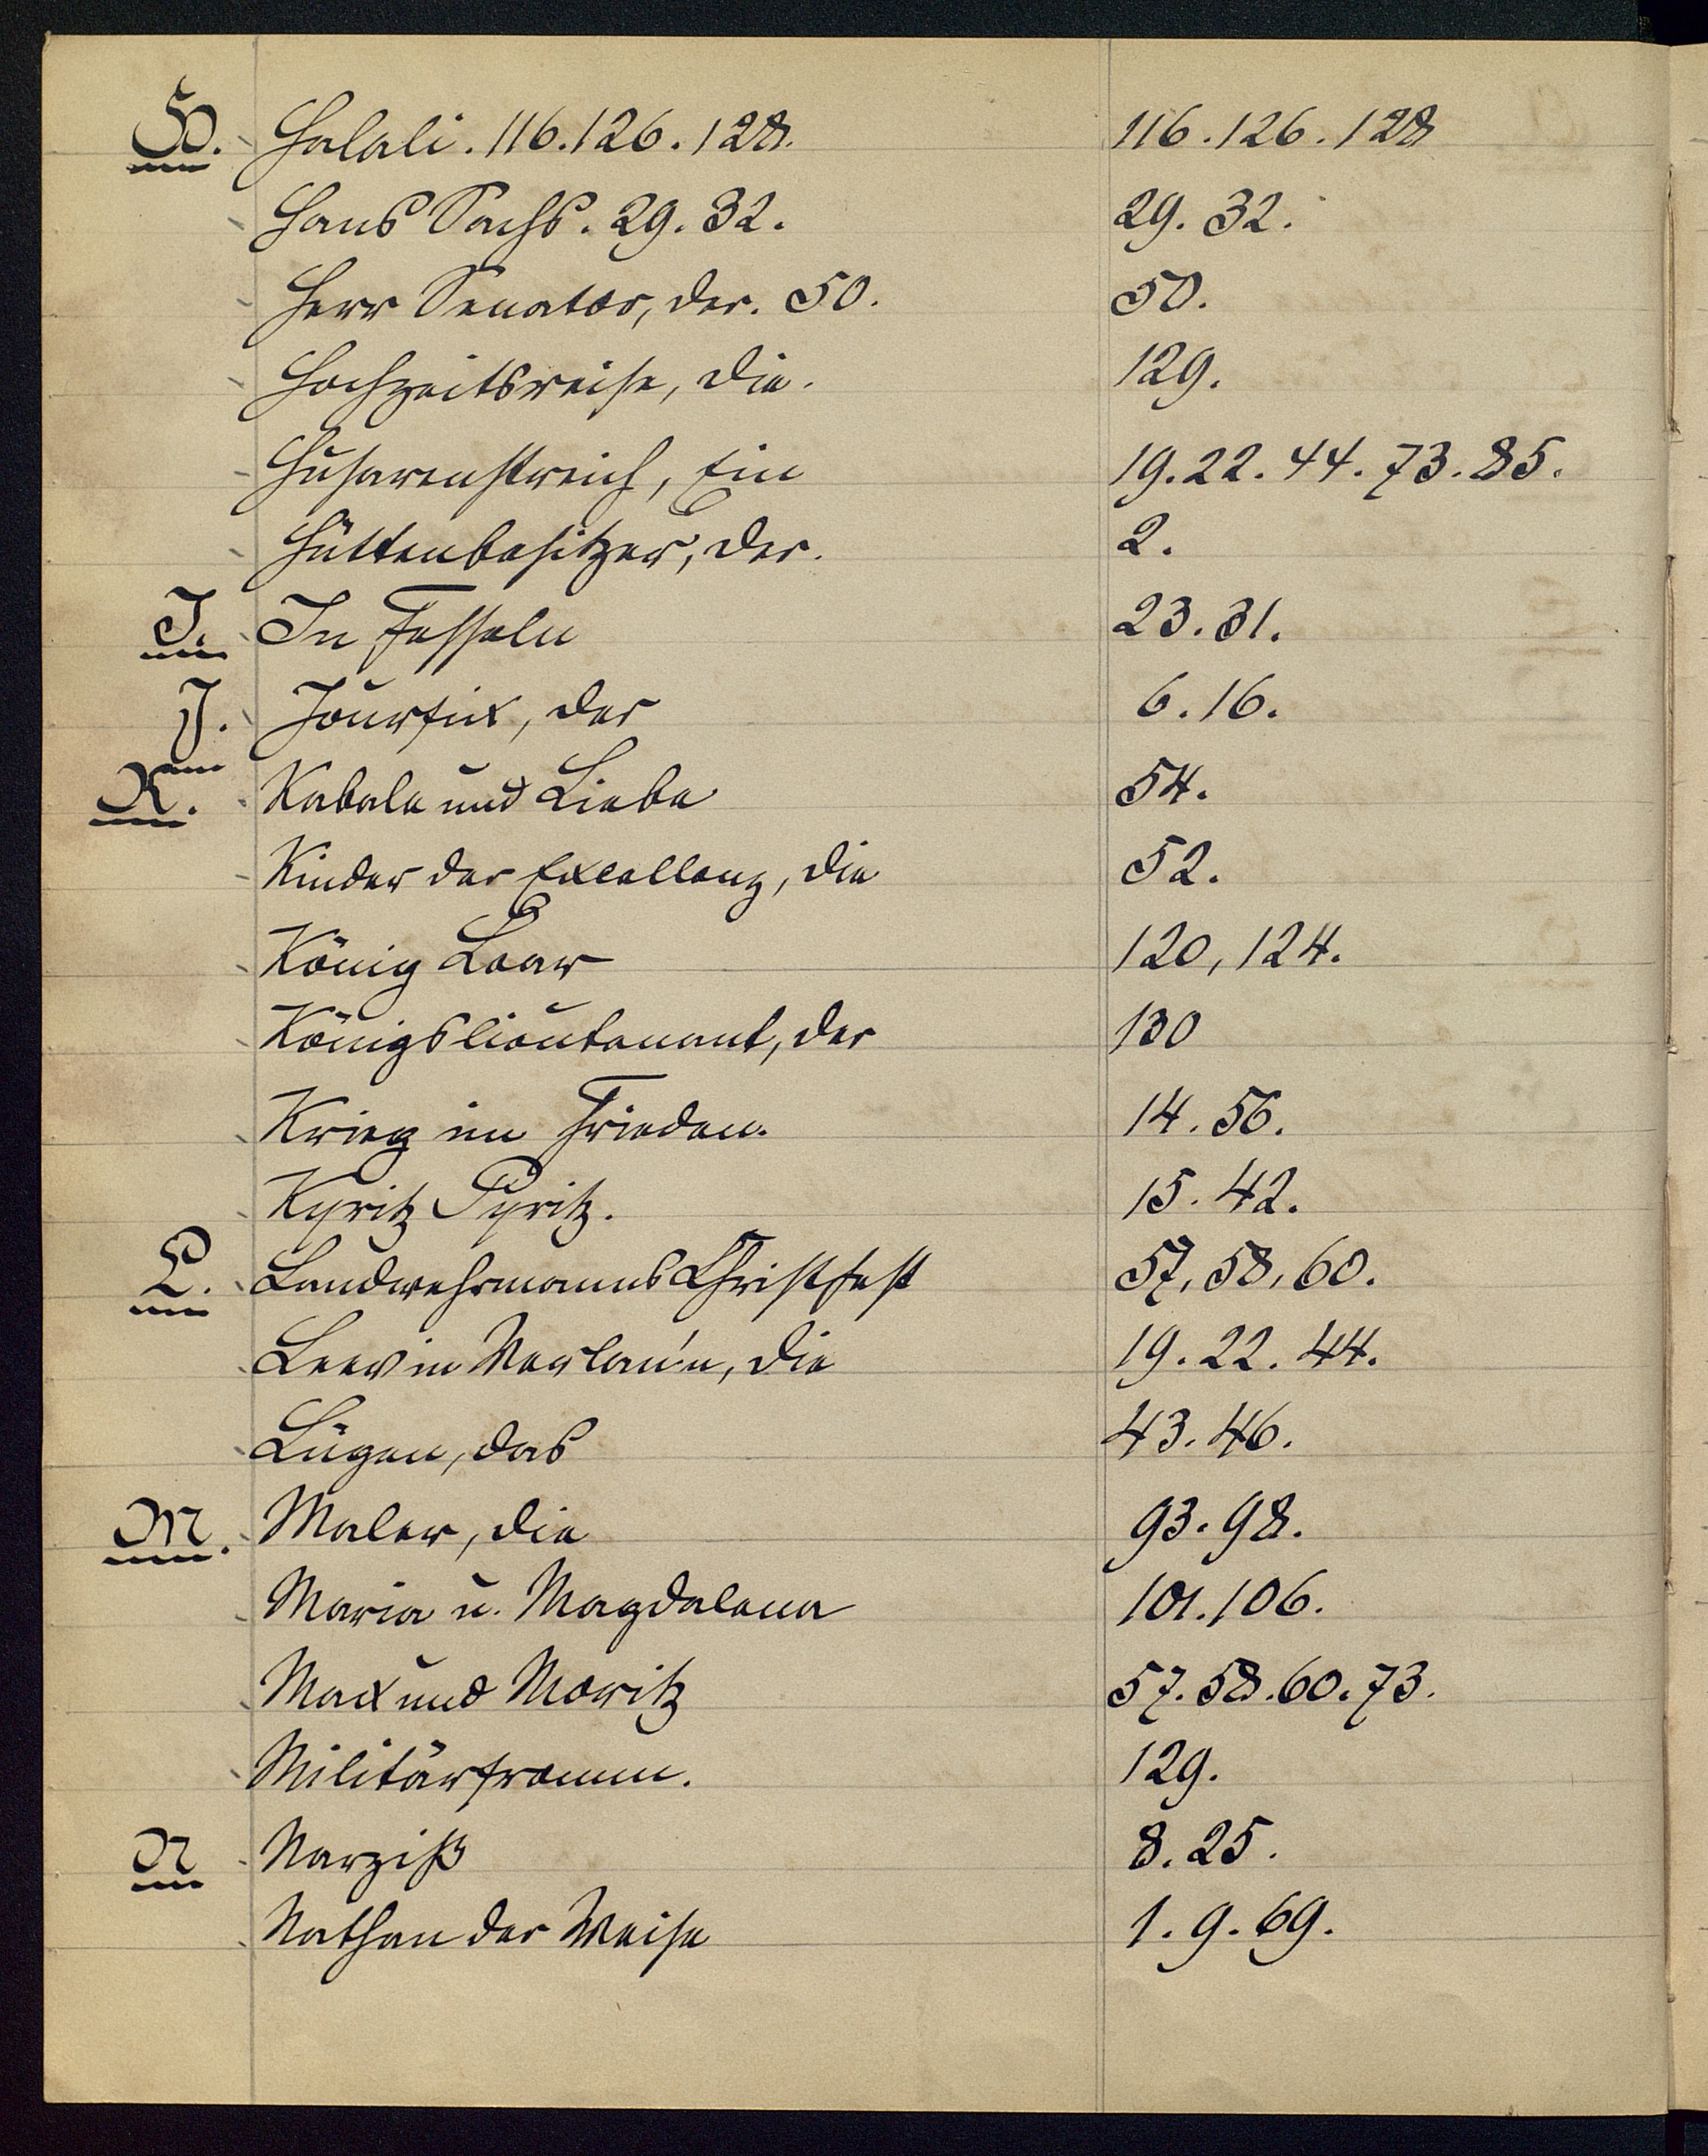 H. Halali. 116. 126. 128. 116. 126. 128
Hans Sachs. 29. 32. 29. 32.
Herr Senator, der. 50. 50.
Hochzeitsreise, die. 129.
Husarenstreich, Ein 19. 22. 44. 73. 85.
Hüttenbesitzer, der. 2.
I. In Fesseln 23. 31.
J. Jourfix, der 6. 16.
K. Kabale und Liebe 54.
Kinder der Excellenz, die 52.
König Lear 120, 124.
Königslieutenant, der 130
Krieg im Frieden. 14. 56.
Kyritz Pyritz. 15. 42.
L. Landwehrmanns Christfest 57, 58, 60.
in die 19. 22. 44.
Lügen, das 43. 46.
M. Maler, die 93. 98.
Maria u. Magdalena 101. 106.
Max und Moritz 57. 58. 60. 73.
Militärfromm. 129.
N Narziß 8. 25.
Nathan der Weise 1. 9. 69.